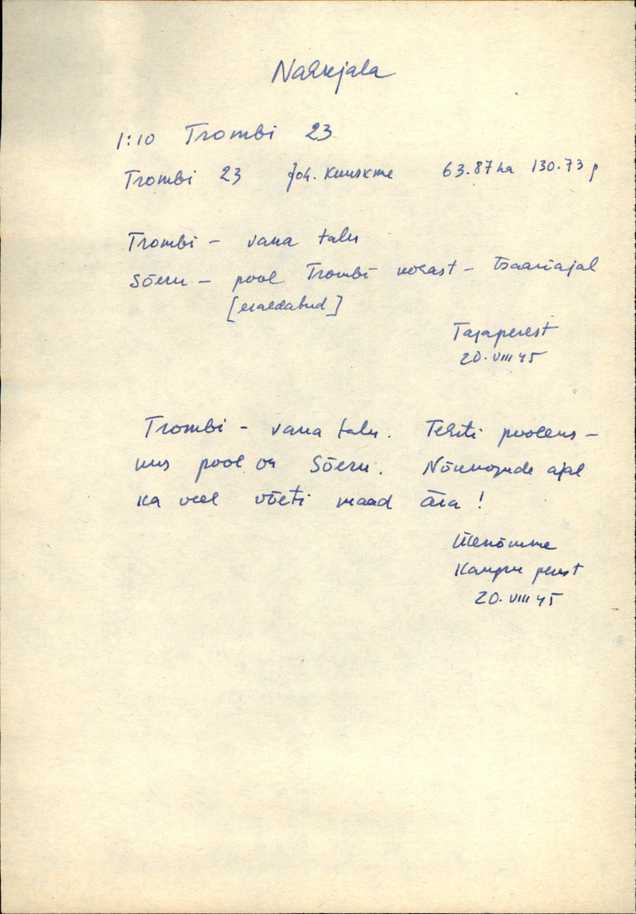 Nakkjala
1:10 Trombi 23
Trombi 23 Joh. Kuuskme 63.87 ha 130.73 p
Trombi – vana talu
Sõeru – pool Trombi kohast – Tsaariajal
[eraldatud]
Tagaperest
20. VIII 45
Trombi – vana talu. Tehti pooleks –
uus pool on Sõeru. Nõukogude ajal
ka veel võeti maad ära!
Ülenõmme
perest
20. VIII 45